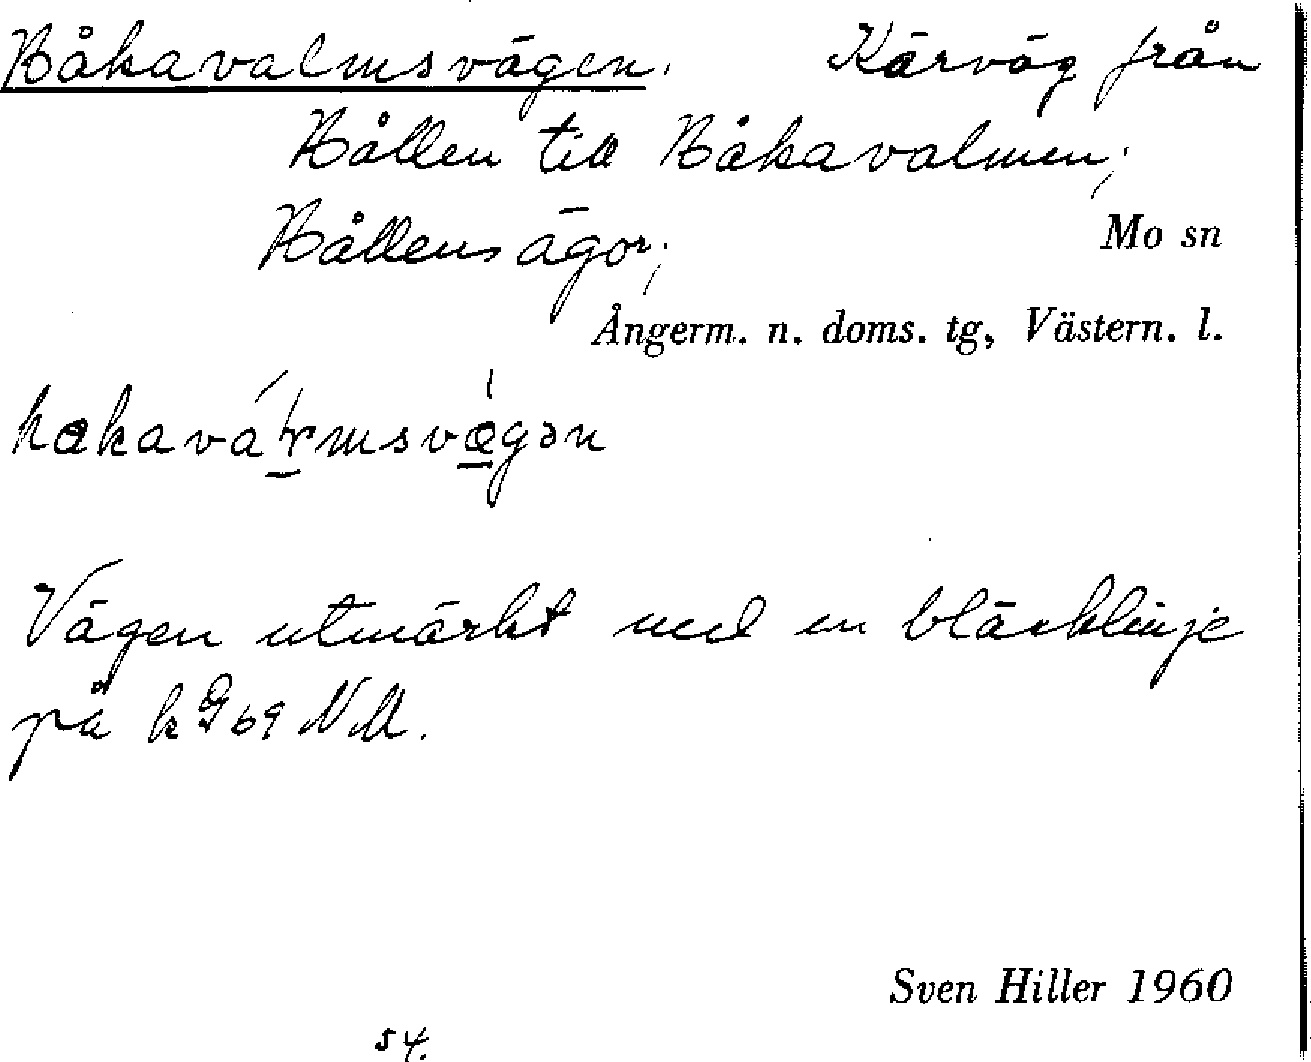 Håkavalmsvägen. Kärväg från
Hållen till Håkavalmen;
Hållens ägor; Mo sn
Ångerm. n. doms. tg, Västern. l.
Vägen utmärkt med en bläcklinje
på k G 69 NM.
Sven Hiller 1960
54.